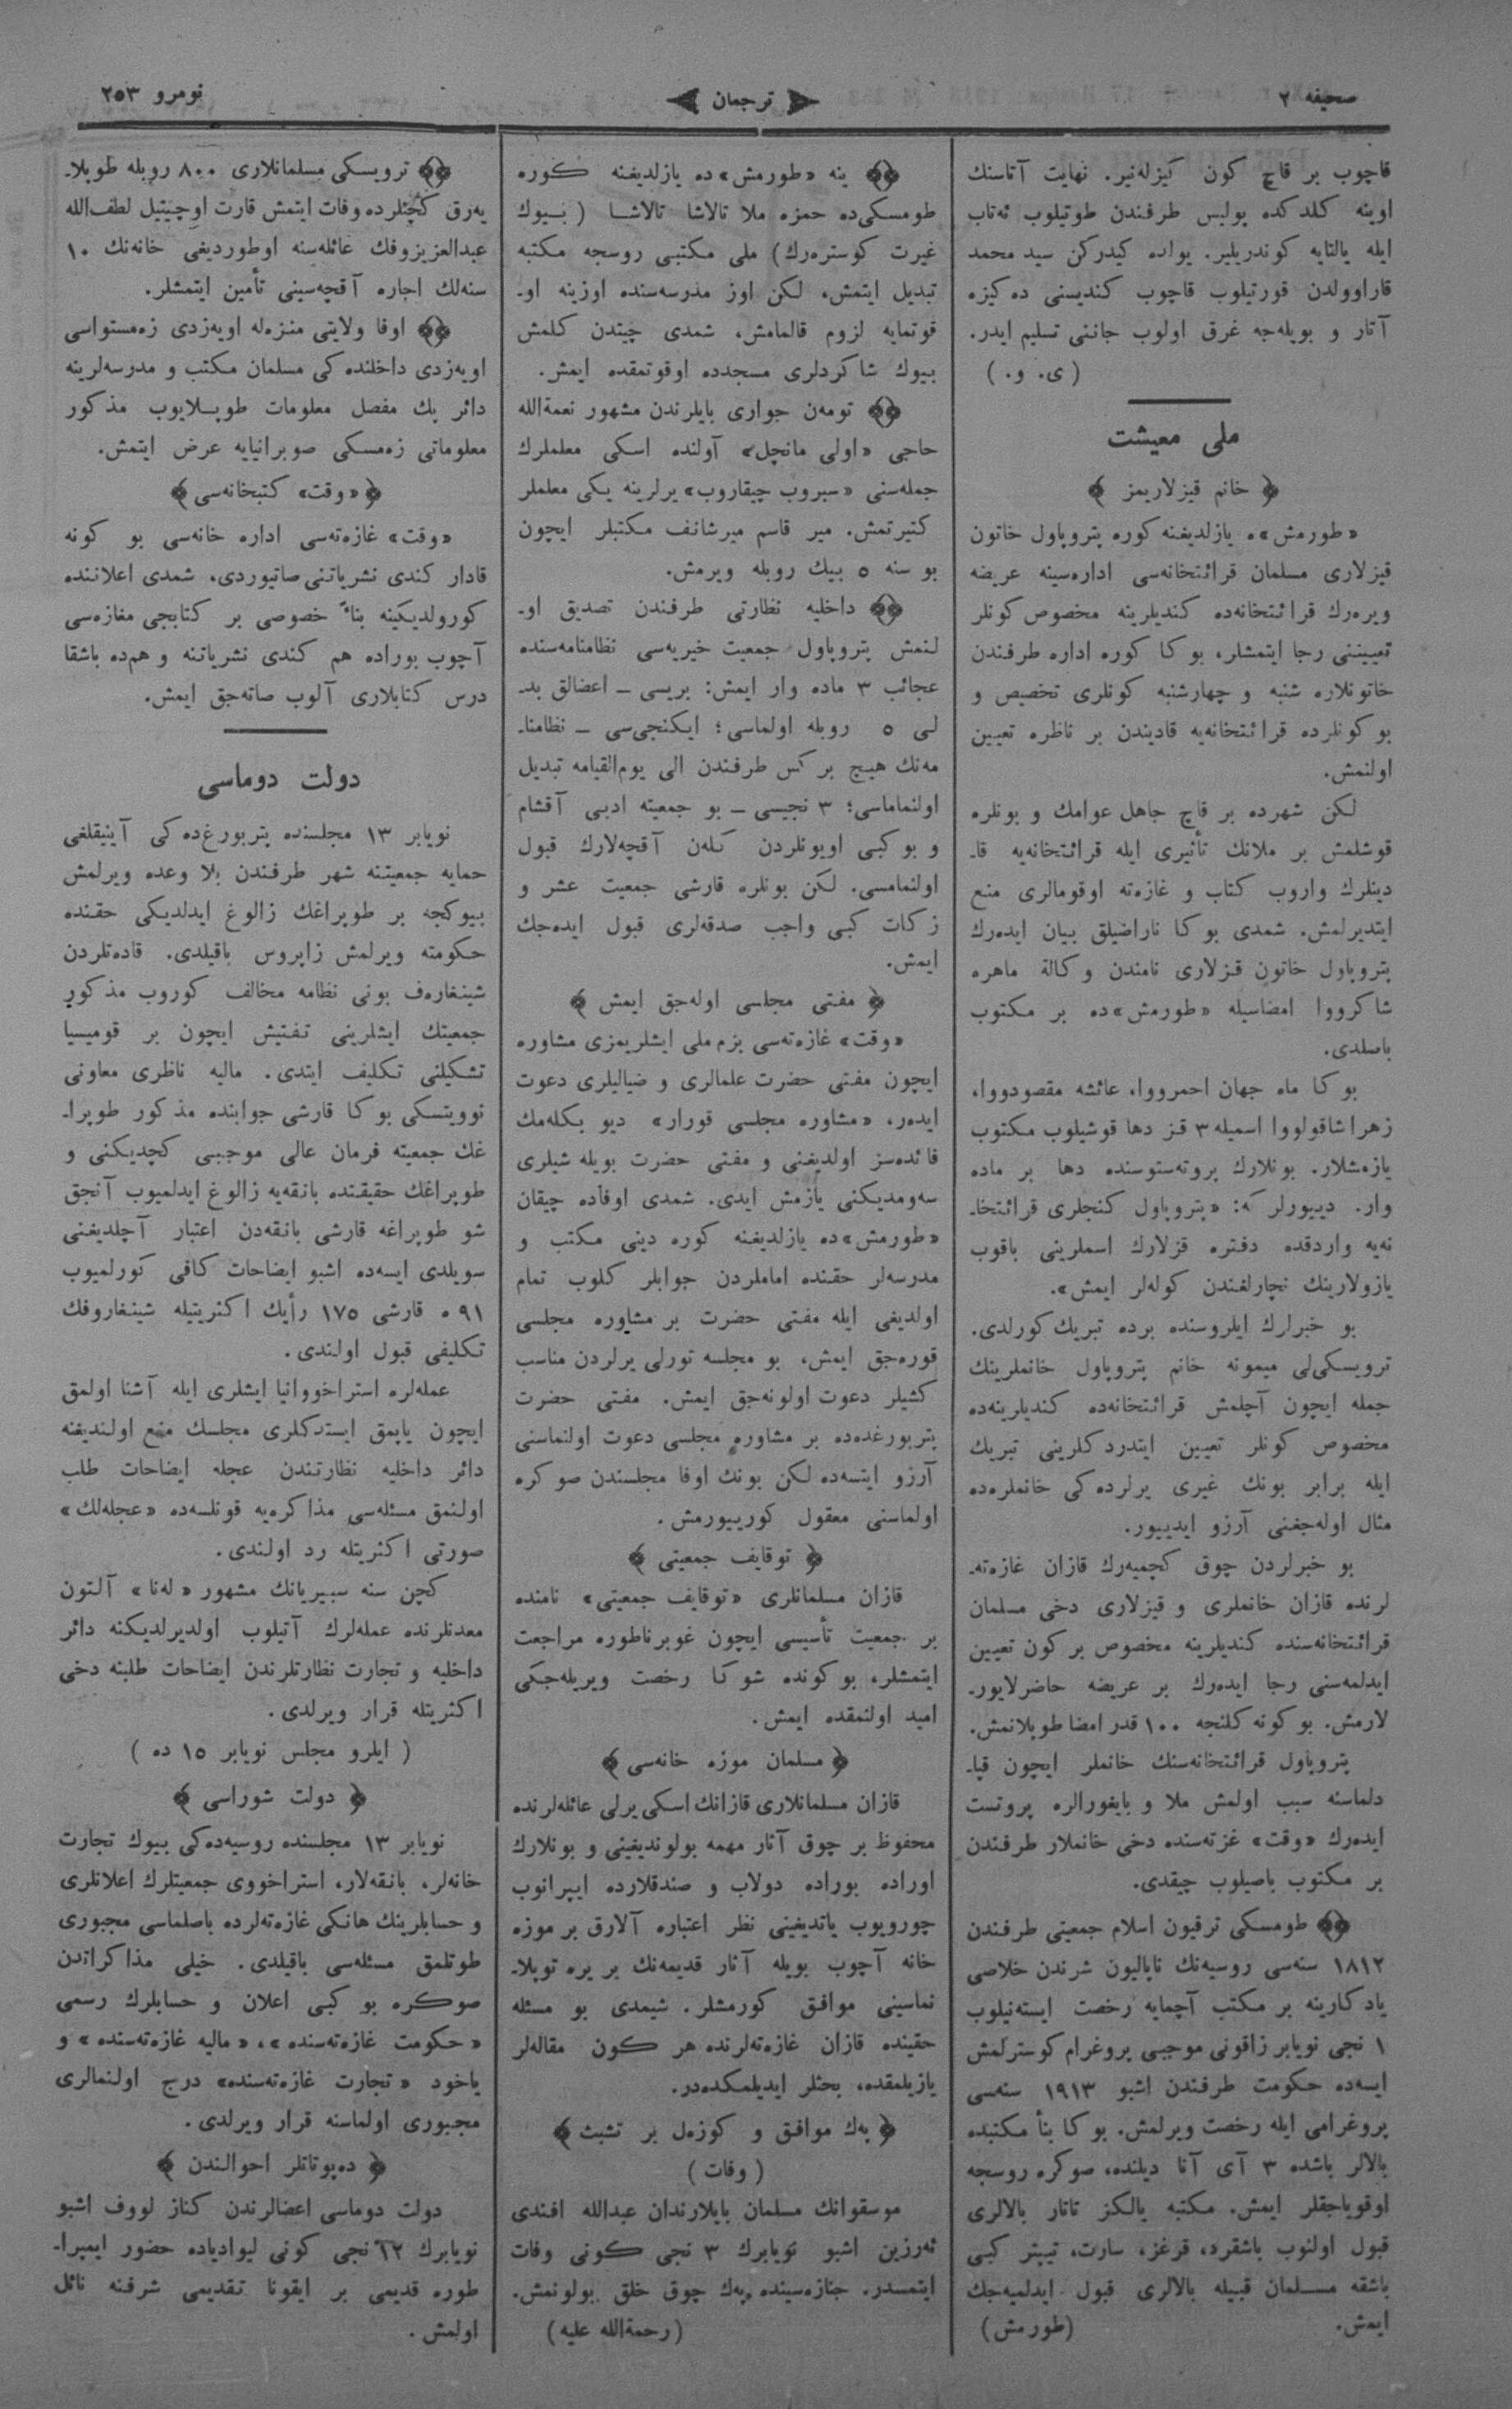 صحيفه ٢
ترجمان
نومرو ٢٥٣
قاچوب بر قاچ كون كيزله‌نير. نهايت آتاسنك
اوينه كلدكده پوليس طرفندن طوتيلوب ئه‌تاب
ايله يالتايه كوندريلير. يولده كيدركن سيد محمد
قاراوولدن قورتيلوب قاچوب كنديسنى ده‌كيزه
آتار و بويله‌جه غرق اولوب جاننى تسليم ايدر.
( ى. و. )
ملى معيشت
﴿ خانم قيزلاريمز ﴾
«طورمش»ه يازلديغنه كوره پتروپاول خاتون
قيزلارى مسلمان قرائتخانه‌سى اداره‌سينه عريضه
ويره‌رك قرائتخانه‌ده كنديلرينه مخصوص كونلر
تعييننى رجا ايتمشلر، بوكا كوره اداره طرفندن
خاتونلاره شنبه و چهارشنبه كونلرى تخصيص و
بو كونلرده قرائتخانه‌يه قاديندن بر ناظره تعيين
اولنمش.
لكن شهرده بر قاچ جاهل عوامك و بونلره
قوشلمش بر ملانك تأثيرى ايله قرائتخانه‌يه قا-
دينلرك واروب كتاب و غازه‌ته اوقومالرى منع
ايتديرلمش. شمدى بوكا ناراضيلق بيان ايده‌رك
پتروپاول خاتون قزلارى نامندن وكالة ماهره
شاكرووا امضاسيله «طورمش»ده بر مكتوب
باصلدى.
بوكا ماه جهان احمرووا، عائشه مقصودووا،
زهرا شاقولووا اسميله ٣ قز دها قوشيلوب مكتوب
يازمشلار. بونلارك پروته‌ستوسنده دها بر ماده
وار. دييورلر كه: «پتروپاول كنجلرى قرائتخا-
نه‌يه واردقده دفتره قزلارك اسملرينى باقوب
يازولارينك نچارلغندن كوله‌لر ايمش».
بو خبرلرك ايلروسنده برده تبريك كورلدى.
ترويسكى‌لى ميمونه خانم پتروپاول خانملرينك
جمله ايچون آچلمش قرائتخانه‌ده كنديلرينه‌ده
مخصوص كونلر تعيين ايتدردكلرينى تبريك
ايله برابر بونك غيرى يرلرده‌كى خانملره‌ده
مثال اوله‌جغنى آرزو ايدييور.
بو خبرلردن چوق كچميه‌رك قازان غازه‌ته-
لرنده قازان خانملرى و قيزلارى دخى مسلمان
قرائتخانه‌سنده كنديلرينه مخصوص بر كون تعيين
ايدلمه‌سنى رجا ايده‌رك بر عريضه حاضرلايور-
لارمش. بو كونه كلنجه ١٠٠ قدر امضا طوپلانمش.
پتروپاول قرائتخانه‌سنك خانملر ايچون قپا-
دلماسنه سبب اولمش ملا و بايغورالره پروتست
ايده‌رك «وقت» غزته‌سنده دخى خانملار طرفندن
بر مكتوب باصيلوب چيقدى.
طومسكى ترقيون اسلام جمعيتى طرفندن
١٨١٢ سنه‌سى روسيه‌نك ناپاليون شرندن خلاصى
يادكارينه بر مكتب آچمايه رخصت ايسته‌نيلوب
١ نجى نويابر زاقونى موجبى پروغرام كوسترلمش
ايسه‌ده حكومت طرفندن اشبو ١٩١٣ سنه‌سى
پروغرامى ايله رخصت ويرلمش. بوكا بنأ مكتبده
بالالر باشده ٣ آى آنا ديلنده، صوكره روسجه
اوقوياجقلر ايمش. مكتبه يالكز تاتار بالالرى
قبول اولنوب باشقرد، قرغز، سارت، تيپتر كبى
باشقه مسلمان قبيله بالالرى قبول ايدلميه‌جك
ايمش. (طورمش)
ينه «طورمش»ده يازلديغنه كوره
طومسكى‌ده حمزه ملا تالاشا تالاشا (بيوك
غيرت كوستره‌رك) ملى مكتبى روسجه مكتبه
تبديل ايتمش، لكن اوز مدرسه‌سنده اوزينه او-
قوتمايه لزوم قالمامش، شمدى چيتدن كلمش
بيوك شاكردلرى مسجدده اوقوتمقده ايمش.
تومه‌ن جوارى بايلرندن مشهور نعمةالله
حاجى «اولى مانچل» آولنده اسكى معلملرك
جمله‌سنى «سبروب چيقاروب» يرلرينه يكى معلملر
كتيرتمش. مير قاسم ميرشانف مكتبلر ايچون
بو سنه ٥ بيك روبله ويرمش.
داخليه نظارتى طرفندن تصديق او-
لنمش پتروپاول جمعيت خيريه‌سى نظامنامه‌سنده
عجائب ٣ ماده وار ايمش: بريسى ـ اعضالق بد-
لى ٥ روبله اولماسى؛ ايكنجى‌سى ـ نظامنا-
مه‌نك هيچ بر كس طرفندن الى يوم‌القيامه تبديل
اولنماماسى؛ ٣ نجيسى ـ بو جمعيته ادبى آقشام
و بو كبى اويونلردن كله‌ن آقچه‌لارك قبول
اولنمامسى. لكن بونلره قارشى جمعيت عشر و
زكات كبى واجب صدقه‌لرى قبول ايده‌جك
ايمش.
﴿ مفتى مجلسى اوله‌جق ايمش ﴾
«وقت» غازه‌ته‌سى بزم ملى ايشلريمزى مشاوره
ايچون مفتى حضرت علمالرى و ضياليلرى دعوت
ايده‌ر، «مشاوره مجلسى قورار» ديو بكله‌مك
فائده‌سز اولديغنى و مفتى حضرت بويله شيلرى
سه‌ومديكنى يازمش ايدى. شمدى اوفاده چيقان
«طورمش»ده يازلديغنه كوره دينى مكتب و
مدرسه‌لر حقنده اماملردن جوابلر كلوب تمام
اولديغى ايله مفتى حضرت بر مشاوره مجلسى
قوره‌جق ايمش، بو مجلسه تورلى يرلردن مناسب
كشيلر دعوت اولونه‌جق ايمش. مفتى حضرت
پتربورغده‌ده بر مشاوره مجلسى دعوت اولنماسنى
آرزو ايتسه‌ده لكن بونك اوفا مجلسندن صوكره
اولماسنى معقول كورييورمش.
﴿ توقايف جمعيتى ﴾
قازان مسلمانلرى «توقايف جمعيتى» نامنده
بر جمعيت تأسيسى ايچون غوبرناطوره مراجعت
ايتمشلر، بو كونده شوكا رخصت ويريله‌جكى
اميد اولنمقده ايمش.
﴿ مسلمان موزه خانه‌سى ﴾
قازان مسلمانلارى قازانك اسكى يرلى عائله‌لرنده
محفوظ بر چوق آثار مهمه بولونديغينى و بونلارك
اوراده بوراده دولاب و صندقلارده ايپرانوب
چورويوب ياتديغينى نظر اعتباره آلارق بر موزه
خانه آچوب بويله آثار قديمه‌نك بر يره توپلا-
نماسينى موافق كورمشلر. شيمدى بو مسئله
حقينده قازان غازه‌ته‌لرنده هر كون مقاله‌لر
يازيلمقده، بحثلر ايديلمكده‌در.
﴿ پك موافق و كوزه‌ل بر تشبث ﴾
( وفات )
موسقوانك مسلمان بايلارندان عبدالله افندى
ئه‌رزين اشبو نويابرك ٣ نجى كونى وفات
ايتمسدر. جنازه‌سينده پك چوق خلق بولونمش.
(رحمةالله عليه)
ترويسكى مسلمانلارى ٨٠٠ روبله طوپلا-
يه‌رق كچنلرده وفات ايتمش قارت اوچيتيل لطف‌الله
عبدالعزيزوفك عائله‌سنه اوطورديغى خانه‌نك ١٠
سنه‌لك اجاره آقچه‌سينى تأمين ايتمشلر.
اوفا ولايتى منزله اويه‌زدى زه‌مستواسى
اويه‌زدى داخلنده‌كى مسلمان مكتب و مدرسه‌لرينه
دائر پك مفصل معلومات طوپلايوب مذكور
معلوماتى زه‌مسكى صوبرانيايه عرض ايتمش.
﴿ «وقت» كتبخانه‌سى ﴾
«وقت» غازه‌ته‌سى اداره خانه‌سى بو كونه
قادار كندى نشرياتنى صاتيوردى، شمدى اعلاننده
كورولديكينه بناءً خصوصى بر كتابجى مغازه‌سى
آچوب بوراده هم كندى نشرياتنه و همده باشقا
درس كتابلارى آلوب صاته‌جق ايمش.
دولت دوماسى
نويابر ١٣ مجلسنده پتربورغ‌ده‌كى آينيقلغى
حمايه جمعيتنه شهر طرفندن بلا وعده ويرلمش
بيوكجه بر طوپراغك زالوغ ايدلديكى حقنده
حكومته ويرلمش زاپروس باقيلدى. قاده‌تلردن
شينغاره‌ف بونى نظامه مخالف كوروب مذكور
جمعيتك ايشلرينى تفتيش ايچون بر قوميسيا
تشكيلنى تكليف ايتدى. ماليه ناظرى معاونى
نوويتسكى بوكا قارشى جوابنده مذكور طوپرا-
غك جمعيته فرمان عالى موجبى كچديكنى و
طوپراغك حقيقتده بانقه‌يه زالوغ ايدلميوب آنجق
شو طوپراغه قارشى بانقه‌دن اعتبار آچلديغنى
سويلدى ايسه‌ده اشبو ايضاحات كافى كورلميوب
٩١ ه قارشى ١٧٥ رأيك اكثريتيله شينغاروفك
تكليفى قبول اولندى.
عمله‌لره استراخووانيا ايشلرى ايله آشنا اولمق
ايچون ياپمق ايستدكلرى مجلسك منع اولنديغنه
دائر داخليه نظارتندن عجله ايضاحات طلب
اولنمق مسئله‌سى مذاكره‌يه قونلسه‌ده «عجله‌لك»
صورتى اكثريتله رد اولندى.
كچن سنه سيبريانك مشهور «له‌نا» آلتون
معدنلرنده عمله‌لرك آتيلوب اولديرلديكنه دائر
داخليه و تجارت نظارتلرندن ايضاحات طلبنه دخى
اكثريتله قرار ويرلدى.
( ايلرو مجلس نويابر ١٥ ده )
﴿ دولت شوراسى ﴾
نويابر ١٣ مجلسنده روسيه‌ده‌كى بيوك تجارت
خانه‌لر، بانقه‌لار، استراخووى جمعيتلرك اعلانلرى
و حسابلرينك هانكى غازه‌ته‌لرده باصلماسى مجبورى
طوتلمق مسئله‌سى باقيلدى. خيلى مذاكراتدن
صوكره بو كبى اعلان و حسابلرك رسمى
«حكومت غازه‌ته‌سنده»، «ماليه غازه‌ته‌سنده» و
ياخود «تجارت غازه‌ته‌سنده» درج اولنمالرى
مجبورى اولماسنه قرار ويرلدى.
﴿ ده‌پوتاتلر احوالندن ﴾
دولت دوماسى اعضالرندن كناز لووف اشبو
نويابرك نجى كونى ليواديا‌ده حضور ايمپرا-
طوره قديمى بر ايقونا تقديمى شرفنه نائل
اولمش.